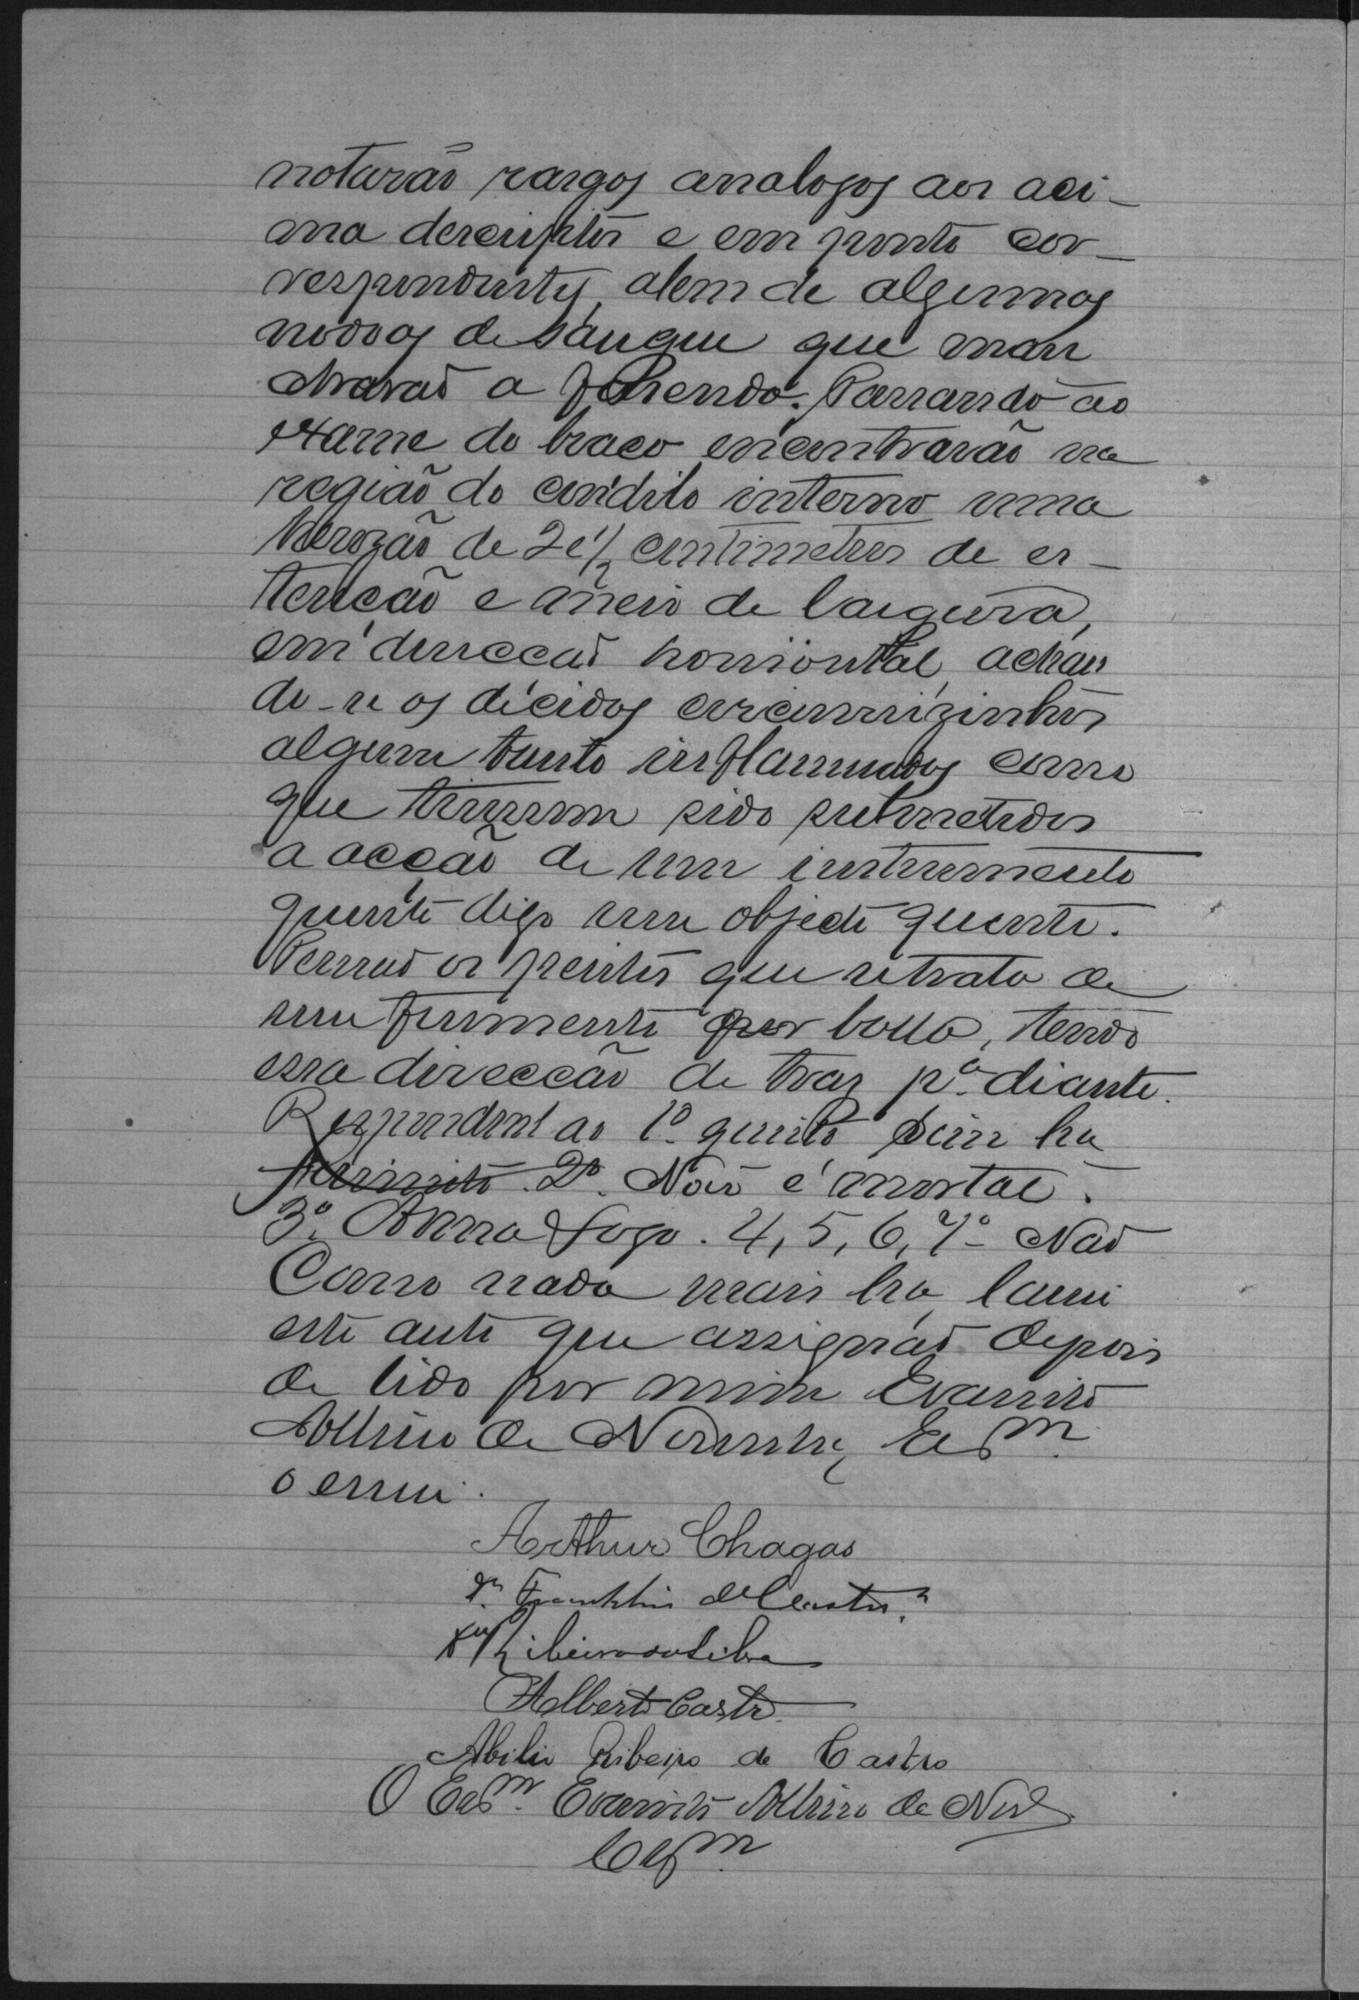 notarão rasgos analogos aos aci-
ma descriptos e em ponto cor-
respondente, alem de algumas
nodoas de sangue que man
chavaõ a fasenda. Passando ao
exame do braço encontrarão na
região do condilo interno uma
herozão de 2 e 1/2 centimetros de es-
tenção e meio de largura,
em direcção horisontal, achan
do-se os técidos circumvizinhos
algum tanto inflammados como
que tivessem sido submetidos
a acção de um instrumento
quente digo um objecto quente.
Pensaõ os peritos que se trata de
um firmento por balla, tendo
essa direcção de traz pª diante.
Respondem ao 1º quisito Sim ha
ferimento. 2º. Não é mortal.
3º. Arma fogo. 4, 5, 6, 7º - Naõ
Como nada mais ha, lavrei
este auto que assignaõ depois
de lido por mim Evaristo
de Noronha, Escm.
o escrevi.
Arthur Chagas
Dr. Franklin de Castro.
Ribeiro da Silva
Alberto Castro
Abilio Ribeiro de Castro
O Escm. Evaristo de Nor.